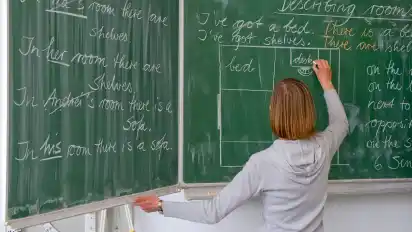 his room there are
shelves
In her room there are
shelves.
In Andrei's room there is a
sofa.
In his room there is a sofa.
Describing room
I've got a bed. There is a
I've got shelves. There are shel
bed
desk
on the
on the
next to
opposit
on the
6 Sen